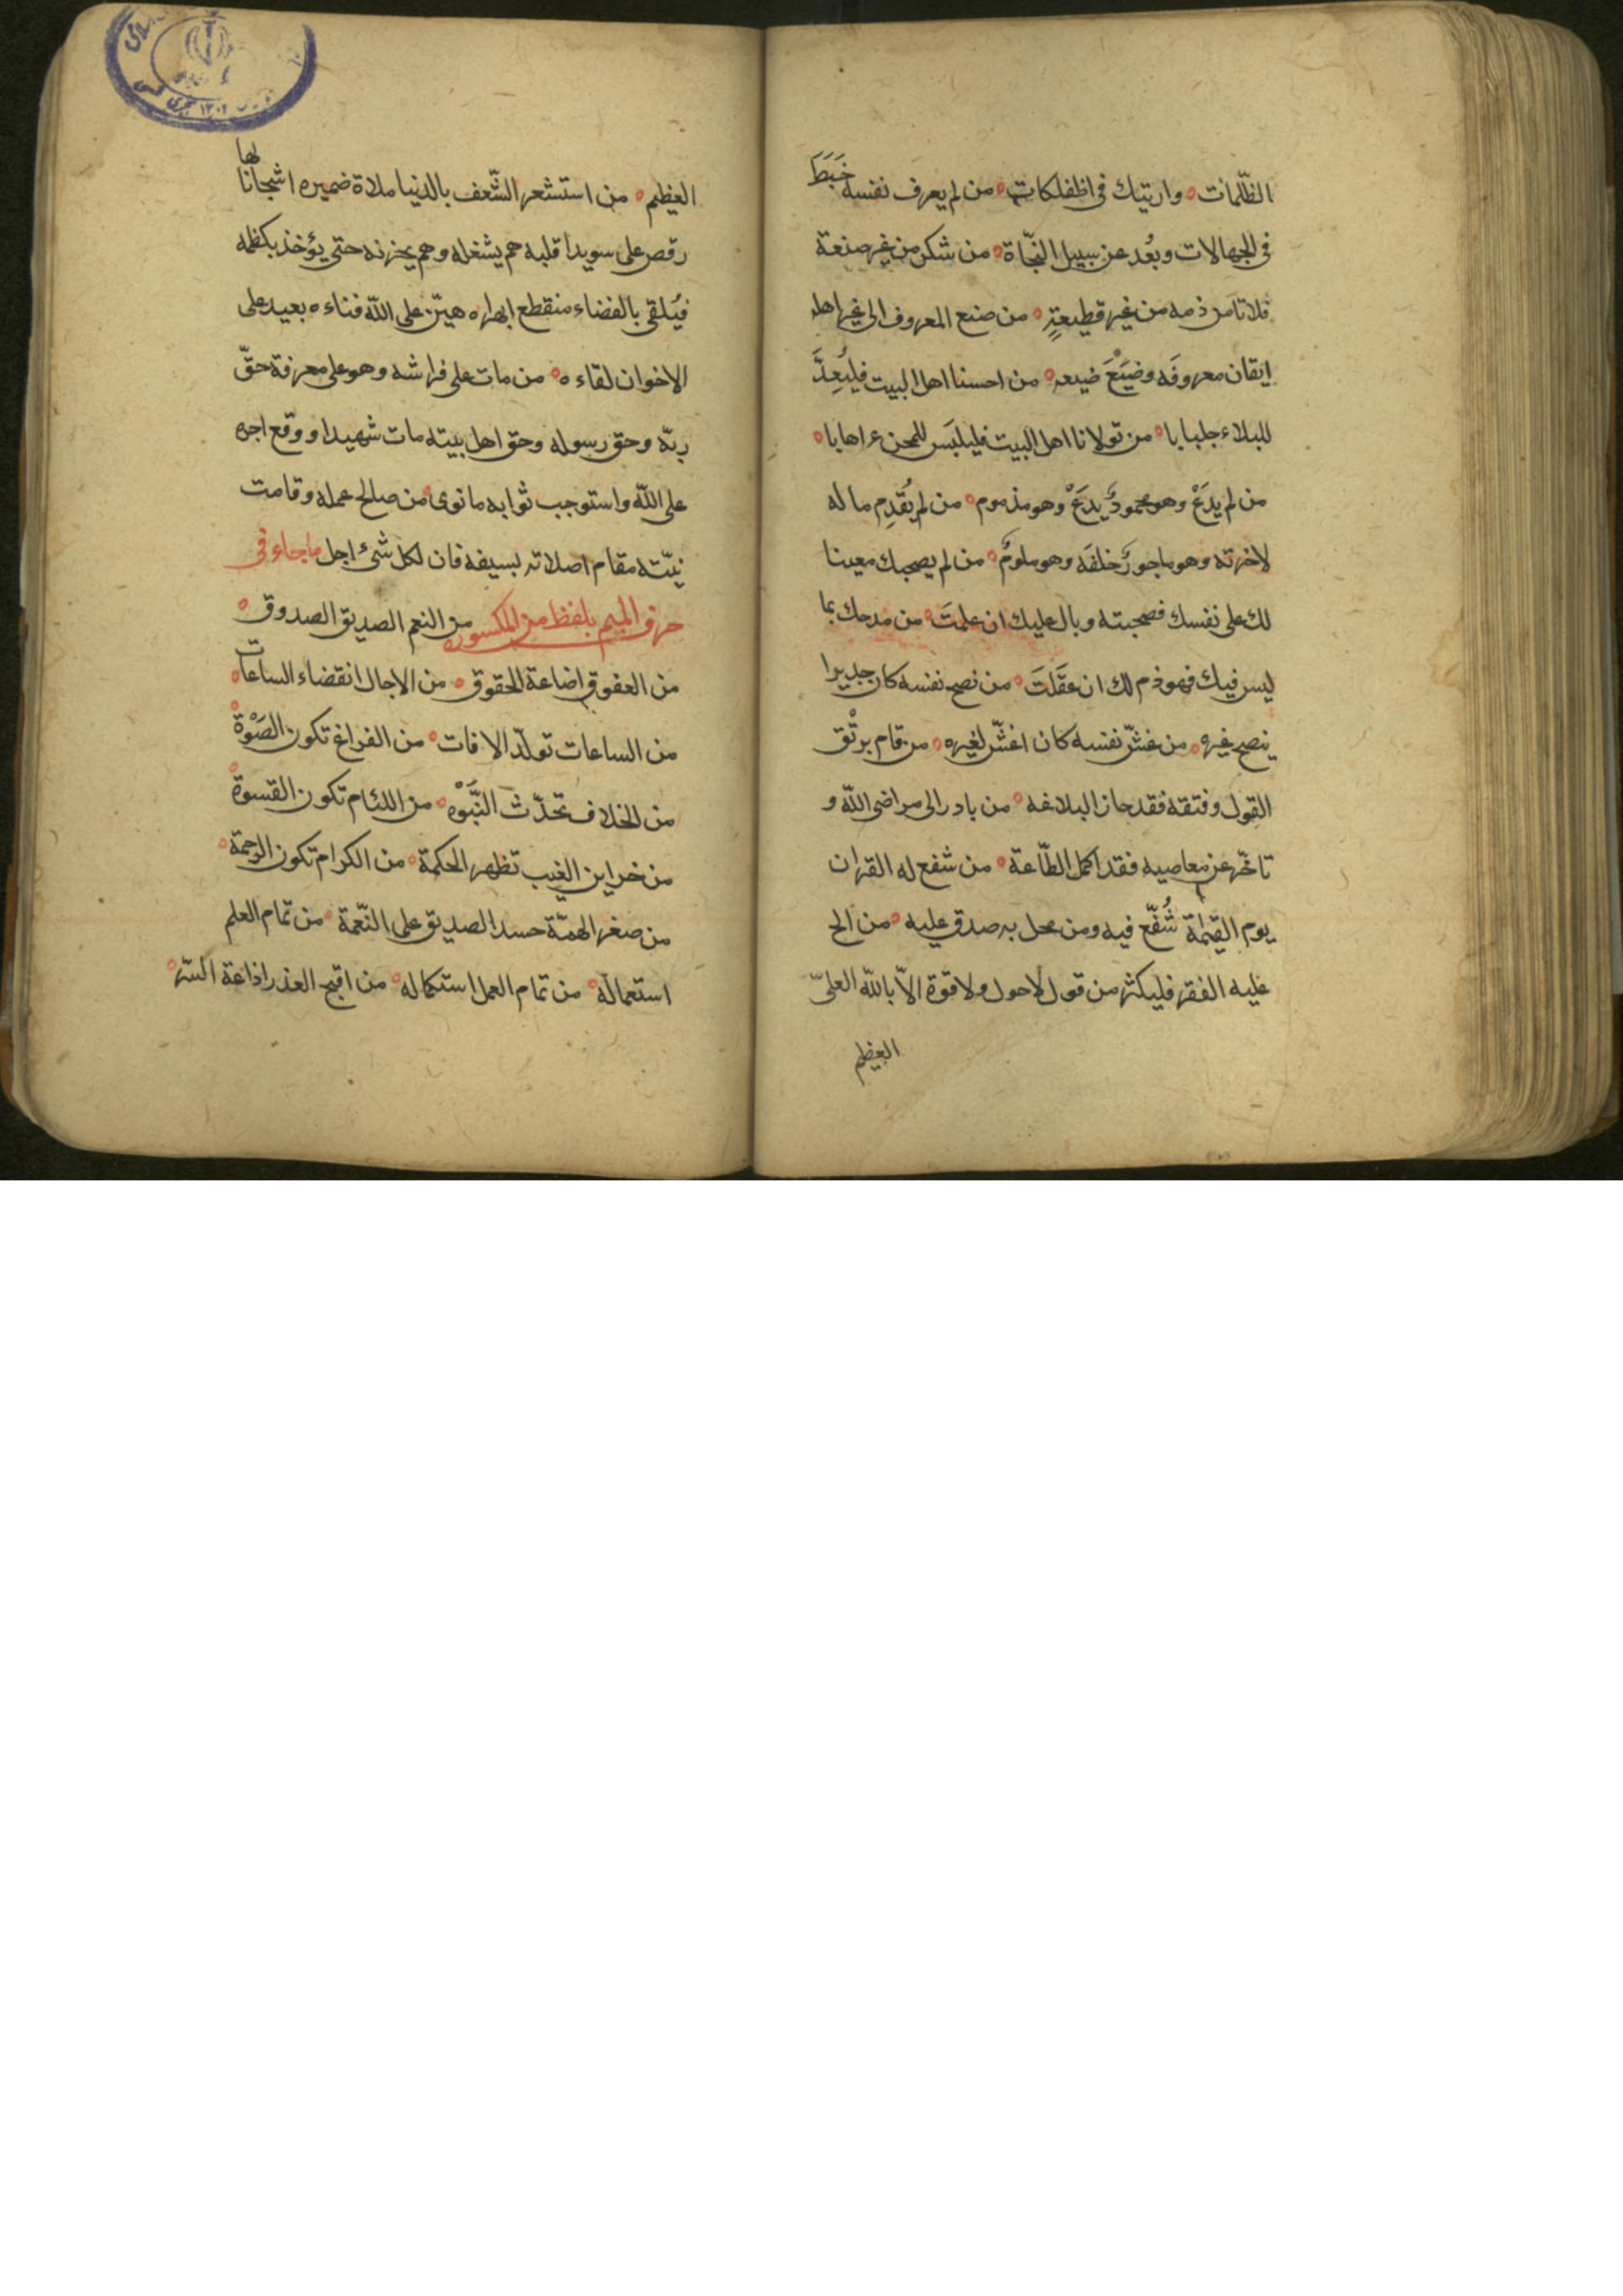 الظّلمات وارتبك في الهلكات من لم يعرف نفسه خَبَطَ
في الجهالات وبَعُد عن سبيل النّجاة من شكر من غير صنعة
فلا تامن ذمه من غير قطيعةٍ من صنع المعروف الى غير اهله
معروفَه وضَيَّعَ من احسنا اهل البيت فليُعِدَّ
للبلاء جلبابا من تولانا اهل البيت فليلبَس للمحن اهابا
من لم يدَعْ وهو محمودٌ يدَعْ وهو مذموم من لم يُقدِم ماله
لاخرته وهو ماجورٌ خلفَه وهو ملومٌ من لم يصحبك معينا
لك على نفسك فصحبته وبال عليك ان علمتَ من مدحك بما
ليس فيك فهو ذم لك ان عقَلتَ من نصح نفسه كان جديرا
بنصح غيره من غشّ نفسه كان اغشّ لغيره من قام برتْق
القول وفتقه فقد حاز البلاغه من بادر الى مراضى اللّه و
تاخّر عن معاصيه فقد اكمل الطّاعة من شفع له القران
يوم القيمة شُفّع فيه ومن محل به صدق عليه من الح
عليه الفقر فليكثر من قول لاحول ولا قوة الاّ باللّه العلىّ
العظيم
العظيم من استشعر الشّعف بالدنيا ملات ضميره اشجانا لها
رقص على سويدا قلبه هم يشغله وهم يحزنه حتى يؤخذ بكظمه
فيُلقى بالفضاء منقطع ابهراه هيّن على اللّه فناءه بعيد على
الاخوان لقاءه من مات على فراشه وهو على معرفة حقّ
ربّه وحق رسوله وحق اهل بيته مات شهيدا ووقع اجره
على اللّه واستوجب ثوابه مانوى من صالح عمله وقامت
نيّته مقام اصلاته بسيفه فان لكل شئ اجل ماجاء فى
حرف الميم بلفظ من المكسوره من النعم الصديق الصدوق
من العقوق اضاعة الحقوق من الاجال انقضاء الساعات
من الساعات تولّد الافات من الفراغ تكون الصَبْوة
من الخلاف تحدّث النَّبَوْه من اللئام تكون القسوة
من خزاين الغيب تظهر الحكمة من الكرام تكون الرحمة
من صغر الهمّة حسد الصديق على النّعمة من تمام العلم
استعماله من تمام العمل استكماله من اقبح الغدر اذاعة السّر